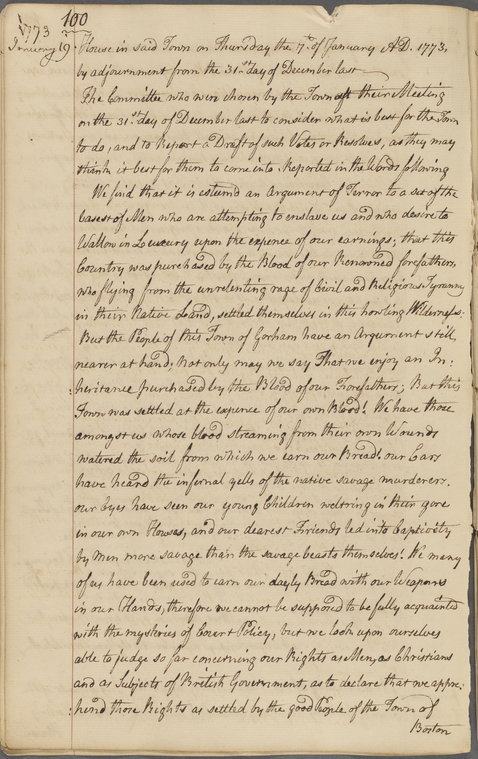 100
1773
January 19
House in said Town on Thursday the 7th. of January A.D. 1773,
by adjournment from the 31.st day of December last
The Committee who were chosen by the Town at their Meeting
on the 31.st day of December last to consider what is best for the Town
to do, and to Report a Draft of such Votes or Resolves, as they may
think it best for them to come into: Reported in the Words following
We find that it is esteem'd an Argument of Terror to a set of the
basest of Men who are attempting to enslave us and who desire to
Wallow in Luxury upon the expence of our earnings; that this
Country was purchased by the Blood of our Renowned forefathers,
who flying from the unrelenting rage of Civil and Religious Tyranny
in their Native Land, settled themselves in this howling Wilderness:
But the People of this Town of Gorham have an Argument still
nearer at hand; not only may we say That we enjoy an In:
:heritance purchased by the Blood of our Forefathers; But this
Town was settled at the expence of our own Blood! We have those
amongst us whose blood streaming from their own Wounds
watered the soil from which we earn our Bread! our Ears
have heard the infernal yells of the native savage murderers.
our Eyes have seen our young Children weltring in their gore
in our own Houses, and our dearest Friends led into Captivity
by Men more savage than the savage beasts themselves! We many
of us have been used to earn our dayly Bread with our Weapons
in our Hands, therefore we cannot be supposed to be fully acquainted
with the mysteries of Court Policy, but we look upon ourselves
able to judge so far concerning our Rights as Men, as Christians
and as Subjects of British Government, as to declare that we appre:
:hend those Rights as settled by the good People of the Town of
Boston